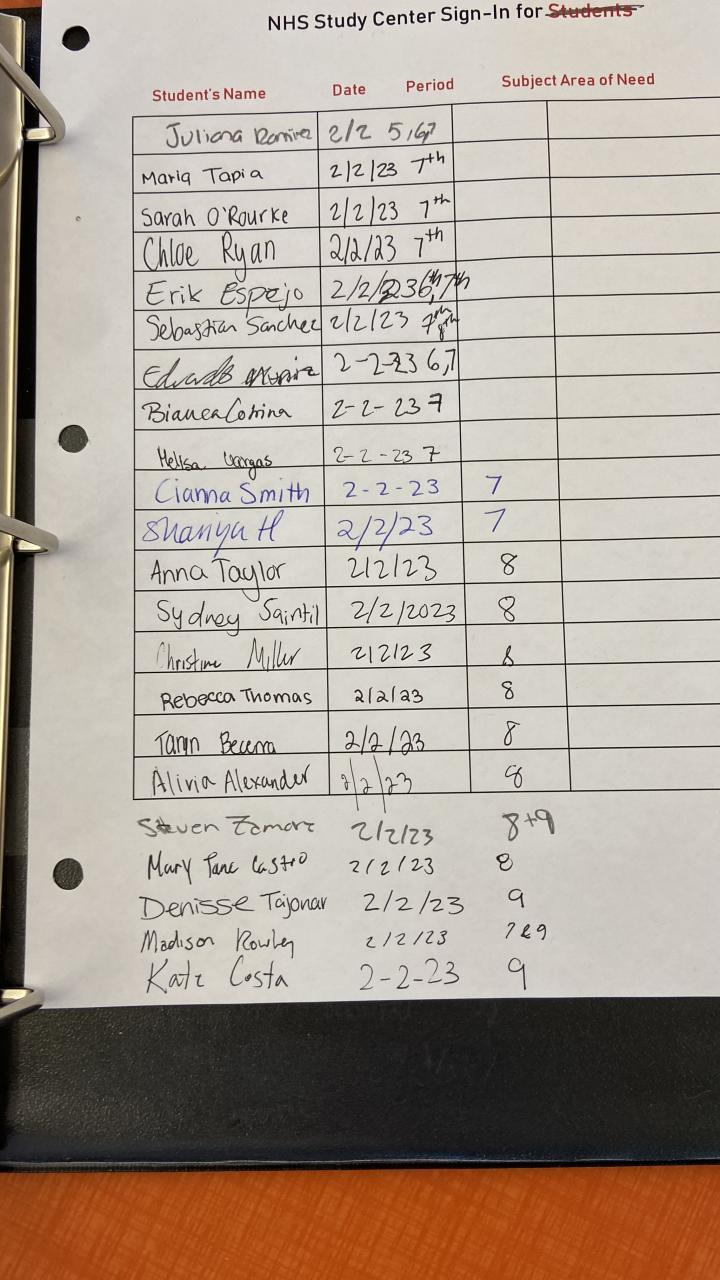 NHS Study Center Sign-In for Students
Student's Name Date Period Subject Area of Need
Juliana 2/2 5,6,7
Maria Tapia 2/2/23 7th
Sarah O'Rourke 2/2/23 7th
Chloe Ryan 2/2/23 7th
Erik Espejo 2/2/23 6th,7th
Sebastian Sanchez 2/2/23 7th 8th
2-2-23 6,7
Bianca 2-2-23 7
Melisa Vargas 2-2-23 7
Cianna Smith 2-2-23 7
Shaniya H 2/2/23 7
Anna Taylor 2/2/23 8
Sydney Saintil 2/2/2023 8
Christine Miller 2/2/23 8
Rebecca Thomas 2/2/23 8
Taryn Becerra 2/2/23 8
Alivia Alexander 2/2/23 8
Steven Zamora 2/2/23 8+9
Mary Jane Castro 2/2/23 8
Denisse Tajonar 2/2/23 9
Madison Rowley 2/2/23 7&9
Kate Costa 2-2-23 9